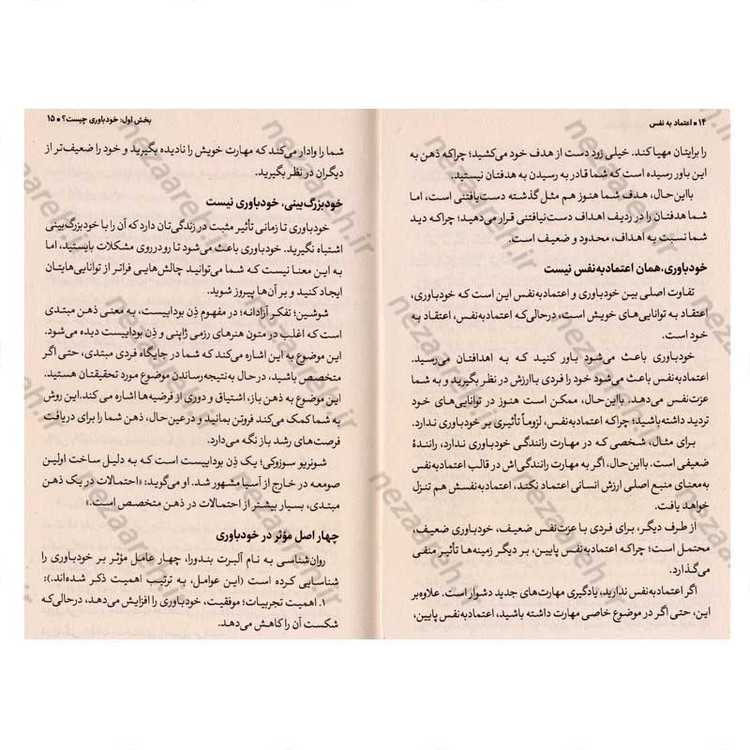 ۱۴ • اعتماد به نفس
را برایتان مهیا کند. خیلی زود دست از هدف خود می‌کشید؛ چراکه ذهن به
این باور رسیده است که شما قادر به رسیدن به هدفتان نیستید.
بااین‌حال، هدف شما هنوز هم مثل گذشته دست‌یافتنی است، اما
شما هدفتان را در ردیف اهداف دست‌نیافتنی قرار می‌دهید؛ چراکه دید
شما نسبت به اهداف، محدود و ضعیف است.
خودباوری، همان اعتمادبه‌نفس نیست
تفاوت اصلی بین خودباوری و اعتمادبه‌نفس این است که خودباوری،
اعتقاد به توانایی‌های خویش است، درحالی‌که اعتمادبه‌نفس، اعتقاد به
خود است.
خودباوری باعث می‌شود باور کنید که به اهدافتان می‌رسید.
اعتمادبه‌نفس باعث می‌شود خود را فردی باارزش در نظر بگیرید و به شما
عزت‌نفس می‌دهد. بااین‌حال، ممکن است هنوز در توانایی‌های خود
تردید داشته‌باشید؛ چراکه اعتمادبه‌نفس، لزوماً تأثیری بر خودباوری ندارد.
برای مثال، شخصی که در مهارت رانندگی خودباوری ندارد، رانندهٔ
ضعیفی است. بااین‌حال، اگر به مهارت رانندگی‌اش در قالب اعتمادبه‌نفس
به‌معنای منبع اصلی ارزش انسانی اعتماد نکند، اعتمادبه‌نفسش هم تنزل
خواهد یافت.
از طرف دیگر، برای فردی با عزت‌نفس ضعیف، خودباوری ضعیف،
محتمل است؛ چراکه اعتمادبه‌نفس پایین، بر دیگر زمینه‌ها تأثیر منفی
می‌گذارد.
اگر اعتمادبه‌نفس ندارید، یادگیری مهارت‌های جدید دشوار است. علاوه‌بر
این، حتی اگر در موضوع خاصی مهارت داشته باشید، اعتمادبه‌نفس پایین،
بخش اول: خودباوری چیست؟ • ۱۵
شما را وادار می‌کند که مهارت خویش را نادیده بگیرید و خود را ضعیف‌تر از
دیگران در نظر بگیرید.
خودبزرگ‌بینی، خودباوری نیست
خودباوری تا زمانی تأثیر مثبت در زندگی‌تان دارد که آن را با خودبزرگ‌بینی
اشتباه نگیرید. خودباوری باعث می‌شود تا رودرروی مشکلات بایستید، اما
به این معنا نیست که شما می‌توانید چالش‌هایی فراتر از توانایی‌هایتان
ایجاد کنید و بر آن‌ها پیروز شوید.
شوشین؛ تفکر آزادانه؛ در مفهوم ذِن بوداییست، به معنی ذهن مبتدی
است که اغلب در متون هنرهای رزمی ژاپنی و ذِن بوداییست دیده می‌شود.
این موضوع به این اشاره می‌کند که شما در جایگاه فردی مبتدی، حتی اگر
متخصص باشید، درحال به‌نتیجه‌رساندن موضوع مورد تحقیقتان هستید.
این موضوع به ذهن باز، اشتیاق و دوری از فرضیه‌ها اشاره می‌کند.این روش
به شما کمک می‌کند فروتن بمانید و درعین‌حال، ذهن شما را برای دریافت
فرصت‌های رشد باز نگه می‌دارد.
شونریو سوزوکی؛ یک ذِن بوداییست است که به دلیل ساخت اولین
صومعه در خارج از آسیا مشهور شد. او می‌گوید: «احتمالات در یک ذهن
مبتدی، بسیار بیشتر از احتمالات در ذهن متخصص است.»
چهار اصل مؤثر در خودباوری
روان‌شناسی به نام آلبرت بندورا، چهار عامل مؤثر بر خودباوری را
شناسایی کرده است (این عوامل، به ترتیب اهمیت ذکر شده‌اند.):
۱. اهمیت تجربیات؛ موفقیت، خودباوری را افزایش می‌دهد، درحالی‌که
شکست آن را کاهش می‌دهد.
nezaareh.ir